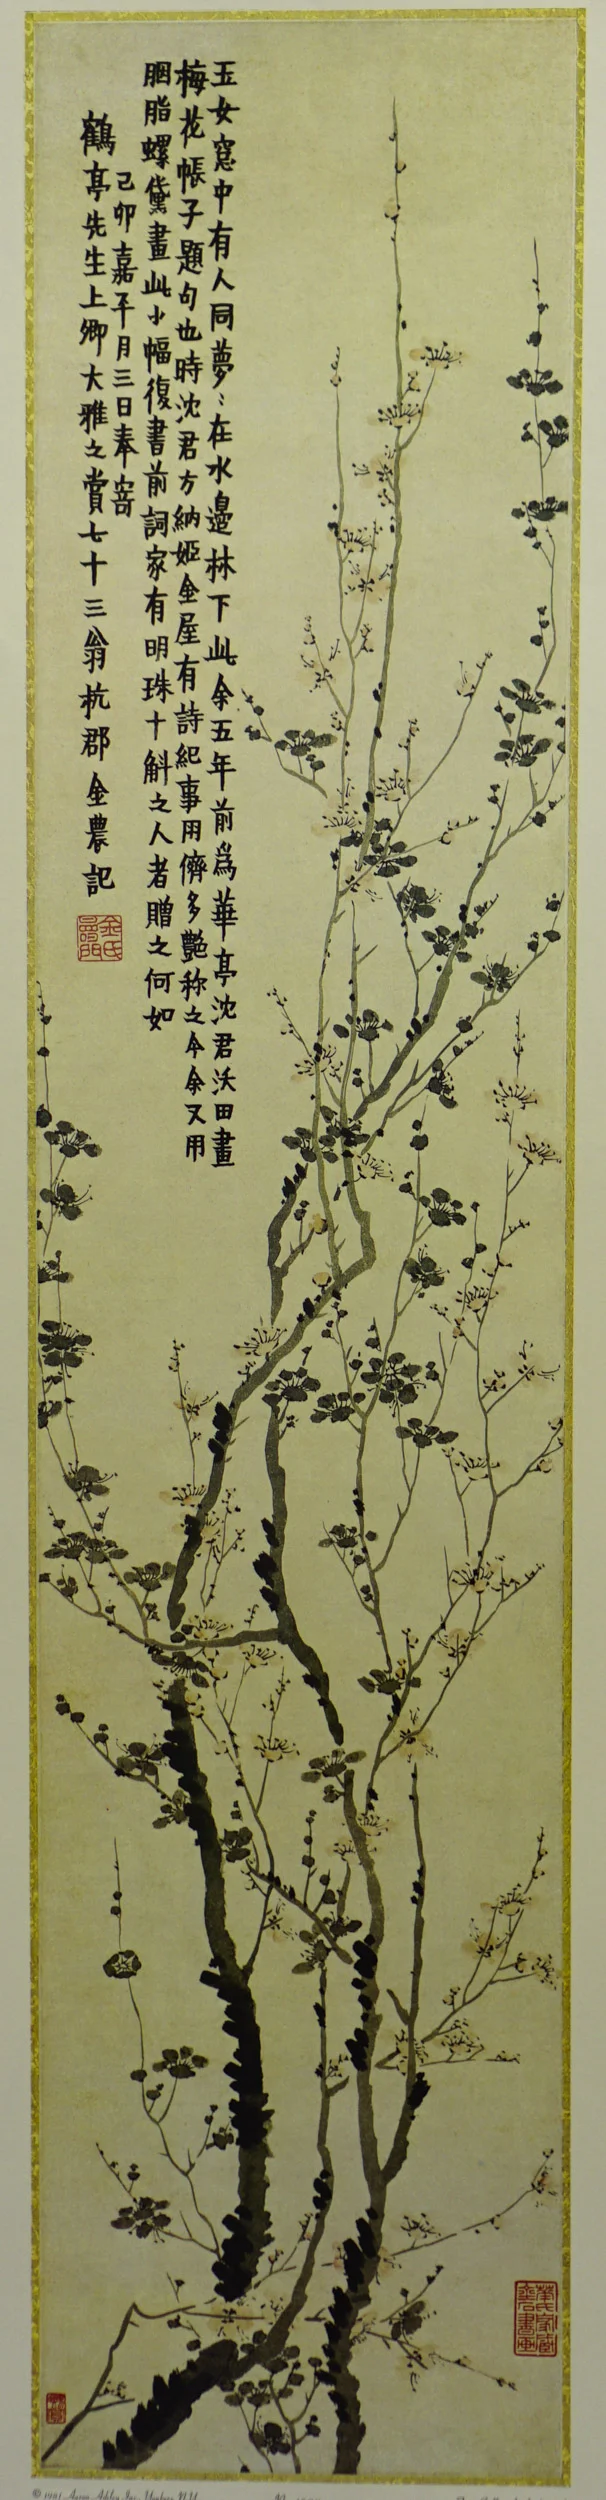 玉女窓中有人同夢〻在水邉林下此余五年前爲華亭沈君沃田畫
梅花帳子題句也時沈君方納姬金屋有詩紀事用儕多艷称之今余又用
胭脂螺黛畫此小幅復書前詞家有明珠十斛之人者贈之何如
己卯嘉平月三日奉寄
鶴亭先生上卿大雅之賞七十三翁杭郡金農記
金氏
© 1981 Aaron Ashley Inc. Yonkers N.Y.